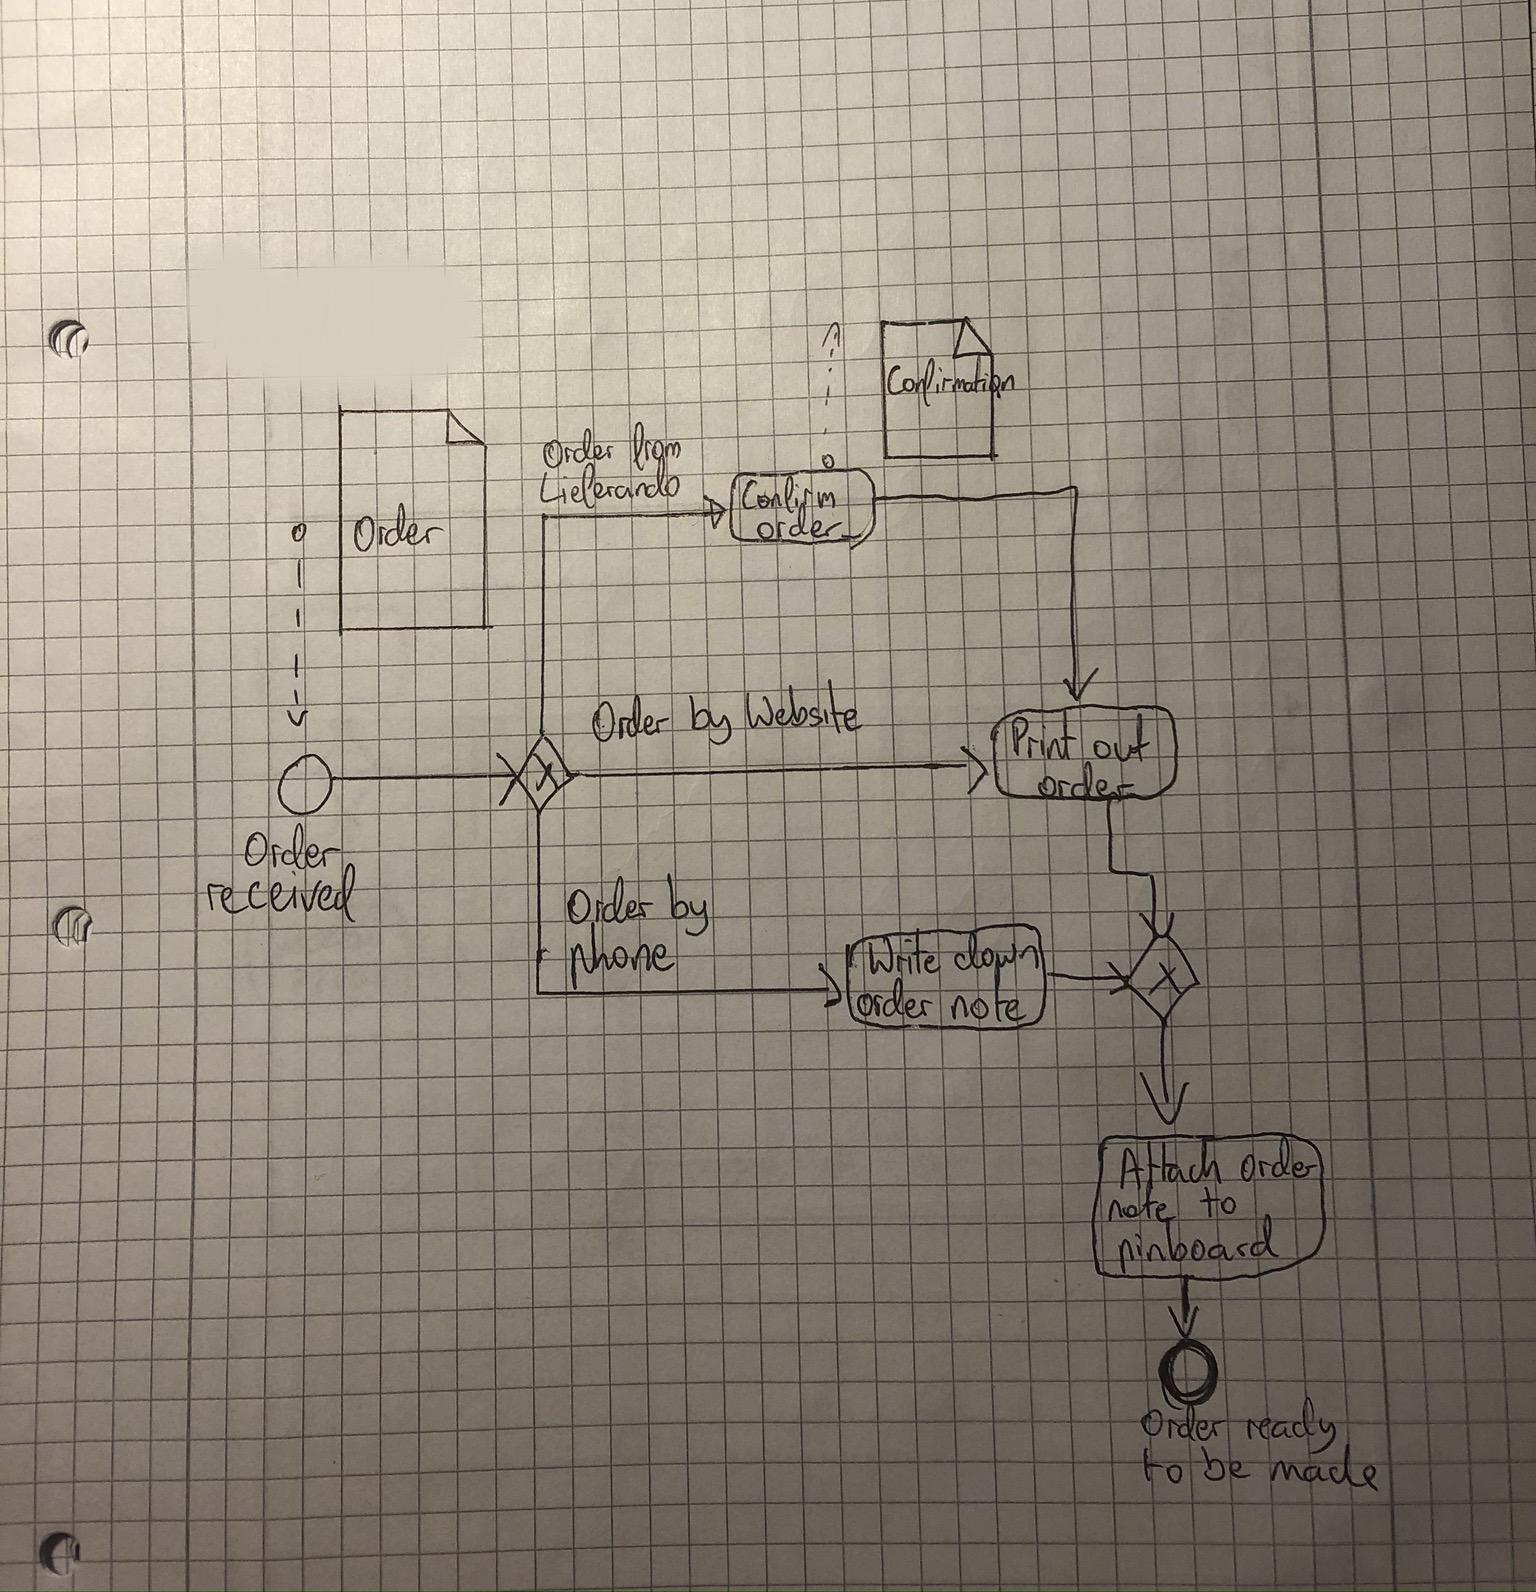 Confirmation
Order from
Lieferando
Confirm
order
Order
Order by Website
Print out
order
Order
received
Order by
phone
Write down
order note
X
X
Attach order
note to
pinboard
Order ready
to be made